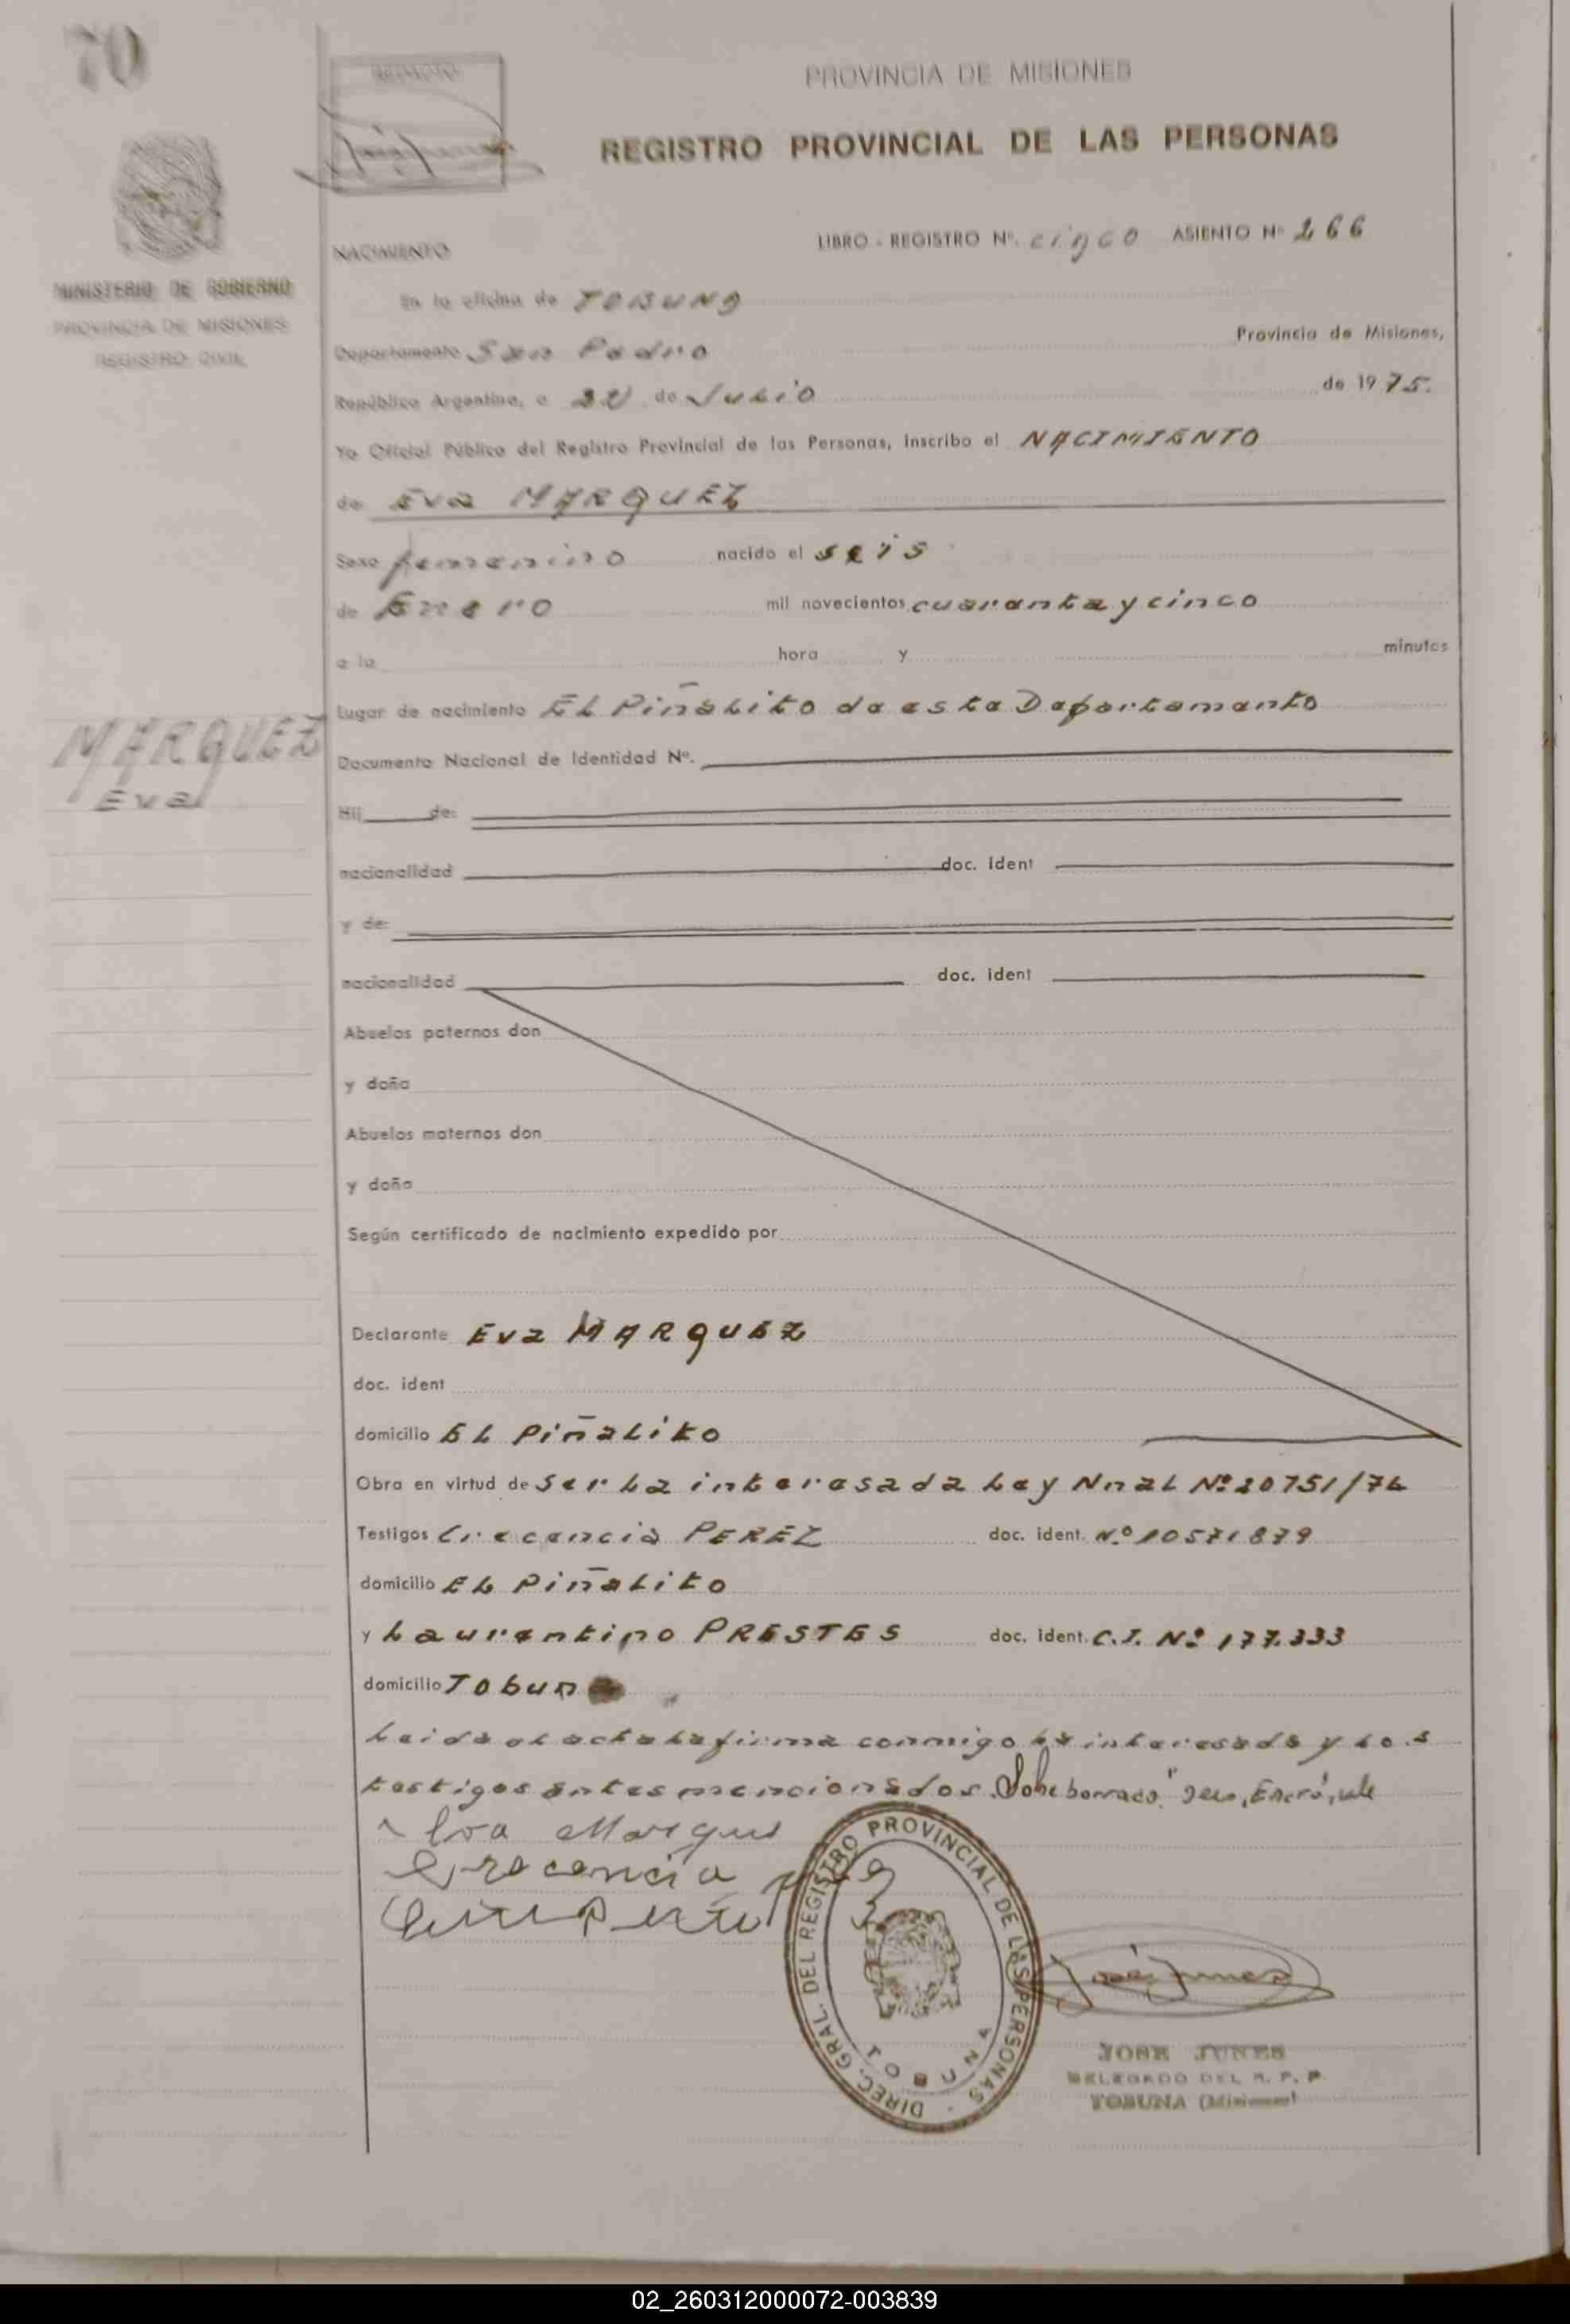 70
PROVINCIA DE MISIONES
REGISTRO PROVINCIAL DE LAS PERSONAS
MINISTERIO DE GOBIERNO
PROVINCIA DE MISIONES
REGISTRO CIVIL
NACIMIENTO
LIBRO - REGISTRO Nº. cinco ASIENTO Nº 266
En la oficina de TOBUNA
Departamento San Pedro Provincia de Misiones,
República Argentina, a de Julio de 1975.
Yo Oficial Público del Registro Provincial de las Personas, inscribo el NACIMIENTO
de Eva MARQUEZ
Sexo femenino nacido el seis
de Enero mil novecientos cuarenta y cinco
a la hora y minutos
Lugar de nacimiento EL Piñalito de este Departamento
MARQUEZ
Eva
Documento Nacional de Identidad Nº.
Hij de:
nacionalidad doc. ident
y de:
nacionalidad doc. ident
Abuelos paternos don
y doña
Abuelos maternos don
y doña
Según certificado de nacimiento expedido por
Declarante Eva MARQUEZ
doc. ident
domicilio EL Piñalito
Obra en virtud de ser la interesada Ley Nnal Nº 20751/74
Testigos Crecencia PEREZ doc. ident. Nº 10571879
domicilio EL Piñalito
y Laurentino PRESTES doc. ident. C.I. Nº 177.333
domicilio Tobuna
Leida el acta la firma conmigo la interesada y los
testigos antes mencionados. Sobre borrado: Enero, vale
Eva Marques
Crecencia
DIREC. GRAL. DEL REGISTRO PROVINCIAL DE LAS PERSONAS
TOBUNA
JOSE JUNES
DELEGADO DEL R. P. P.
TOBUNA (Misiones)
02_260312000072-003839